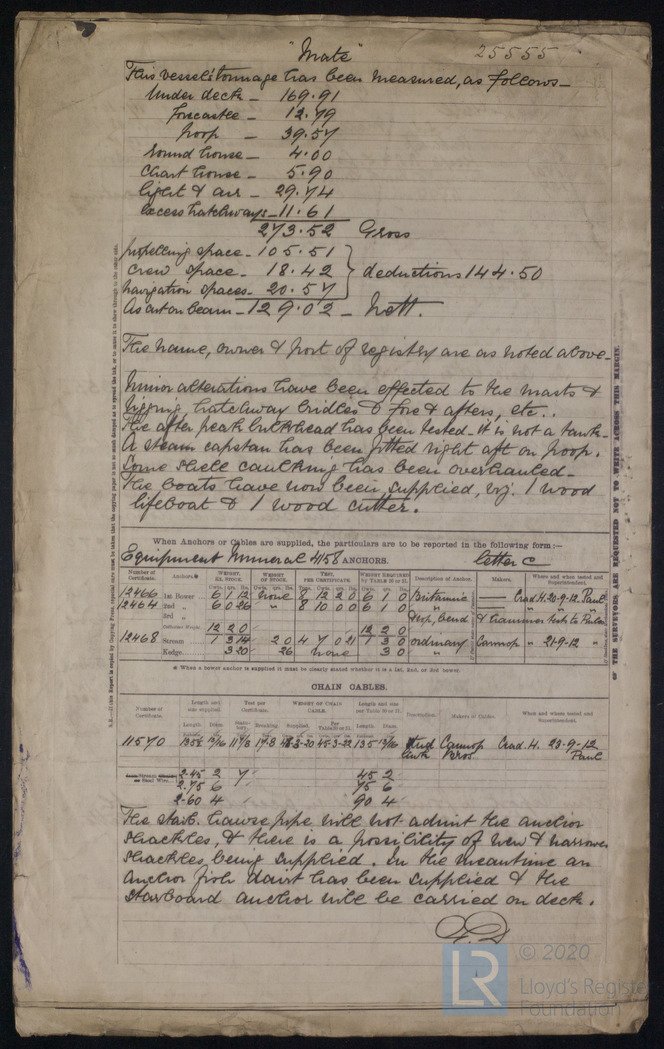 "Mate" 25555
This vessel's tonnage has been measured, as follows—
Under deck — 169.91
forecastle — 12.79
poop — 39.57
round house — 4.00
Chart house — 5.90
light & air — 29.74
excess hatchways — 11.61
273.52 Gross
propelling space — 105.51
crew space — 18.42 } deductions 144.50
navigation spaces — 20.57
As cut on beam — 129.02 — Nett.
The name, owner & port of registry are as noted above—
Minor alterations have been effected to the masts &
rigging, hatchway bridles & fore & afters, etc..
The after peak bulkhead has been tested. It is not a tank.
A steam capstan has been fitted right aft on poop.
Some shell caulking has been overhauled—
The boats have now been supplied, viz. 1 wood
lifeboat & 1 wood cutter.
When Anchors or Cables are supplied, the particulars are to be reported in the following form:—
Equipment Numeral 4158 ANCHORS. letter C
Number of Certificate. Anchors.* WEIGHT, EX. STOCK WEIGHT OF STOCK. TEST, PER CERTIFICATE. WEIGHT REQUIRED Description of Anchor. Makers. Where and when tested and Superintendent.
12466 1st Bower 6 1 12 None 8 12 2 0 6 1 0 Britannia — Crad. H. 20-9-12 Paul
12464 2nd " 6 0 26 " 8 10 0 0 6 1 0 " " "
3rd "
12 2 0 12 2 0
12468 Stream 1 3 14 2 0 4 7 0 21 1 3 0 ordinary " 21-9-12 "
Kedge 3 20 26 None 3 0 "
* When a bower anchor is supplied it must be clearly stated whether it is a 1st, 2nd, or 3rd bower.
CHAIN CABLES.
Number of Certificate. Length and size supplied. Test per Certificate. WEIGHT OF CHAIN CABLE. Length and size Description. Makers of Cables. When and where tested and Superintendent.
11570 Stud Crad. H. 23-9-12
Bros. Paul
2-45 2 7 45 2
2.75 6 75 6
2-60 4 90 4
The starb. hawse pipe will not admit the anchor
shackles, & there is a possibility of new & narrower
shackles being supplied. In the meantime an
anchor fish davit has been supplied & the
starboard anchor will be carried on deck.
THE SURVEYORS ARE REQUESTED NOT TO WRITE ACROSS THIS MARGIN.
© 2020
LR
Lloyd's Register
Foundation